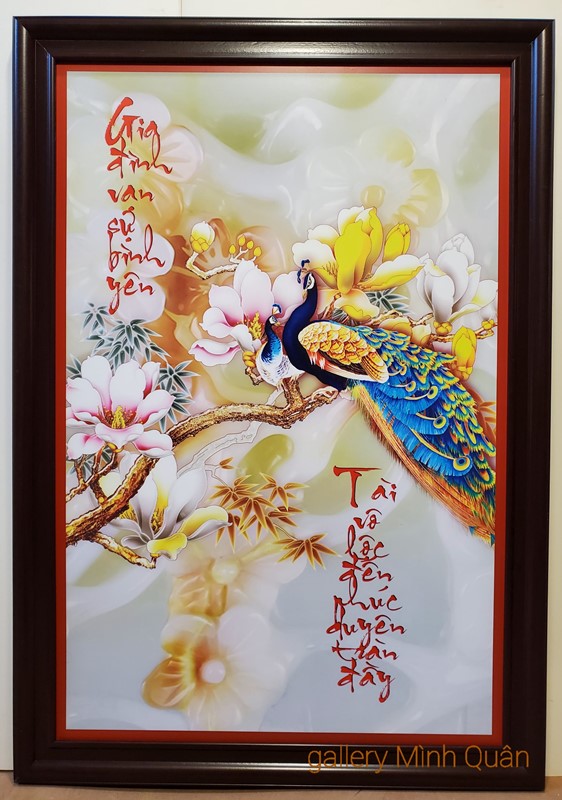 Gia
đình
vạn
sự
bình
yên
Tài
vô
lộc
đến
phúc
duyên
tràn
đầy
gallery Minh Quân